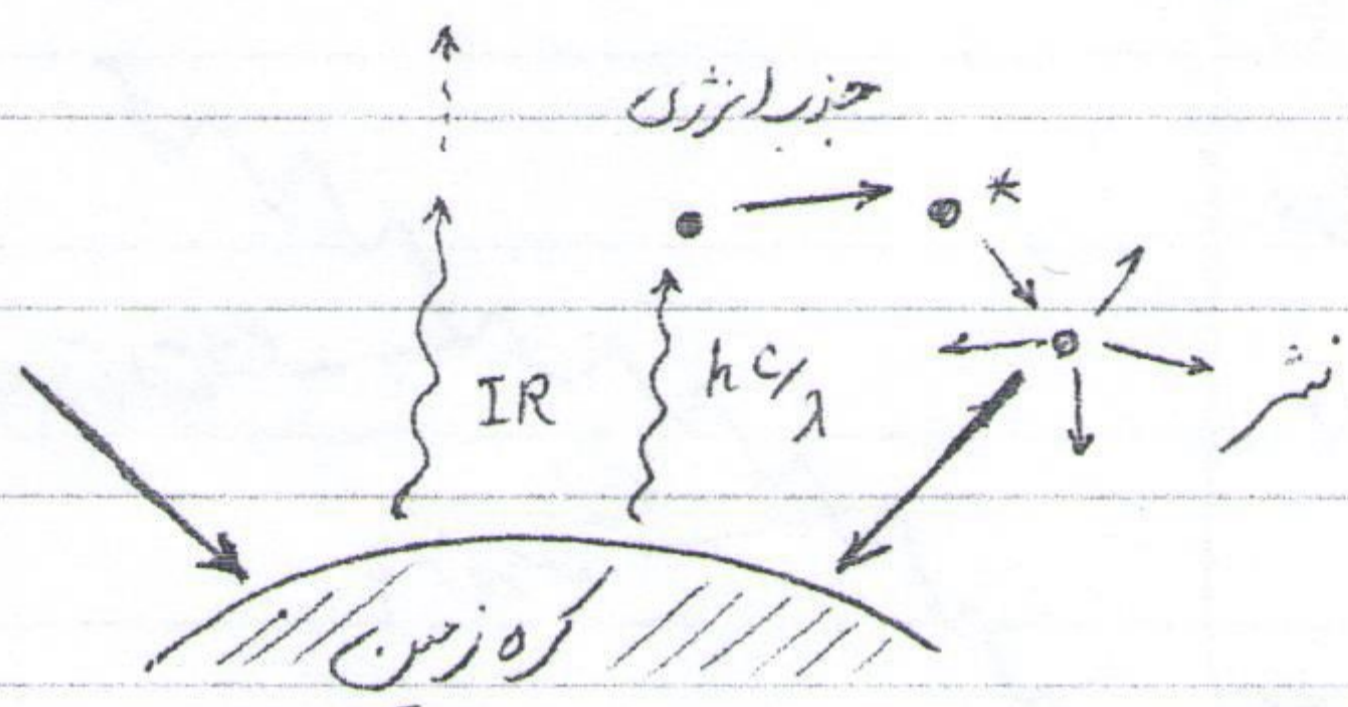 جذب انرژی
*
IR
hc/λ
نشر
کره زمین